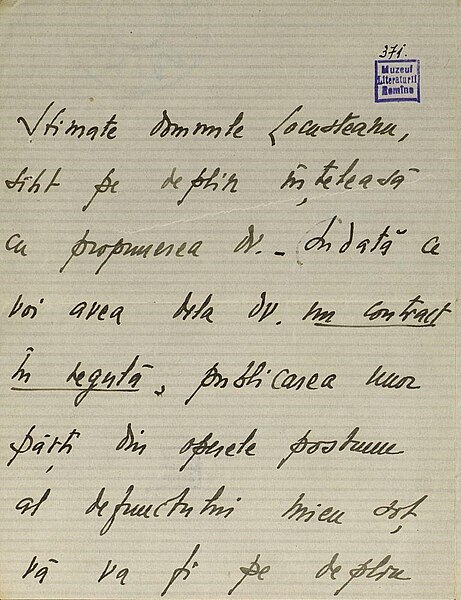 371.
Muzeul
Literaturii
Romîne
Stimate domnule Locusteanu,
sînt pe deplin înțeleasă
cu propunerea dv. – Îndată ce
voi avea dela dv. un contract
în regulă, publicarea unor
părți din operele postume
al defunctului mieu soț,
vă va fi pe deplin